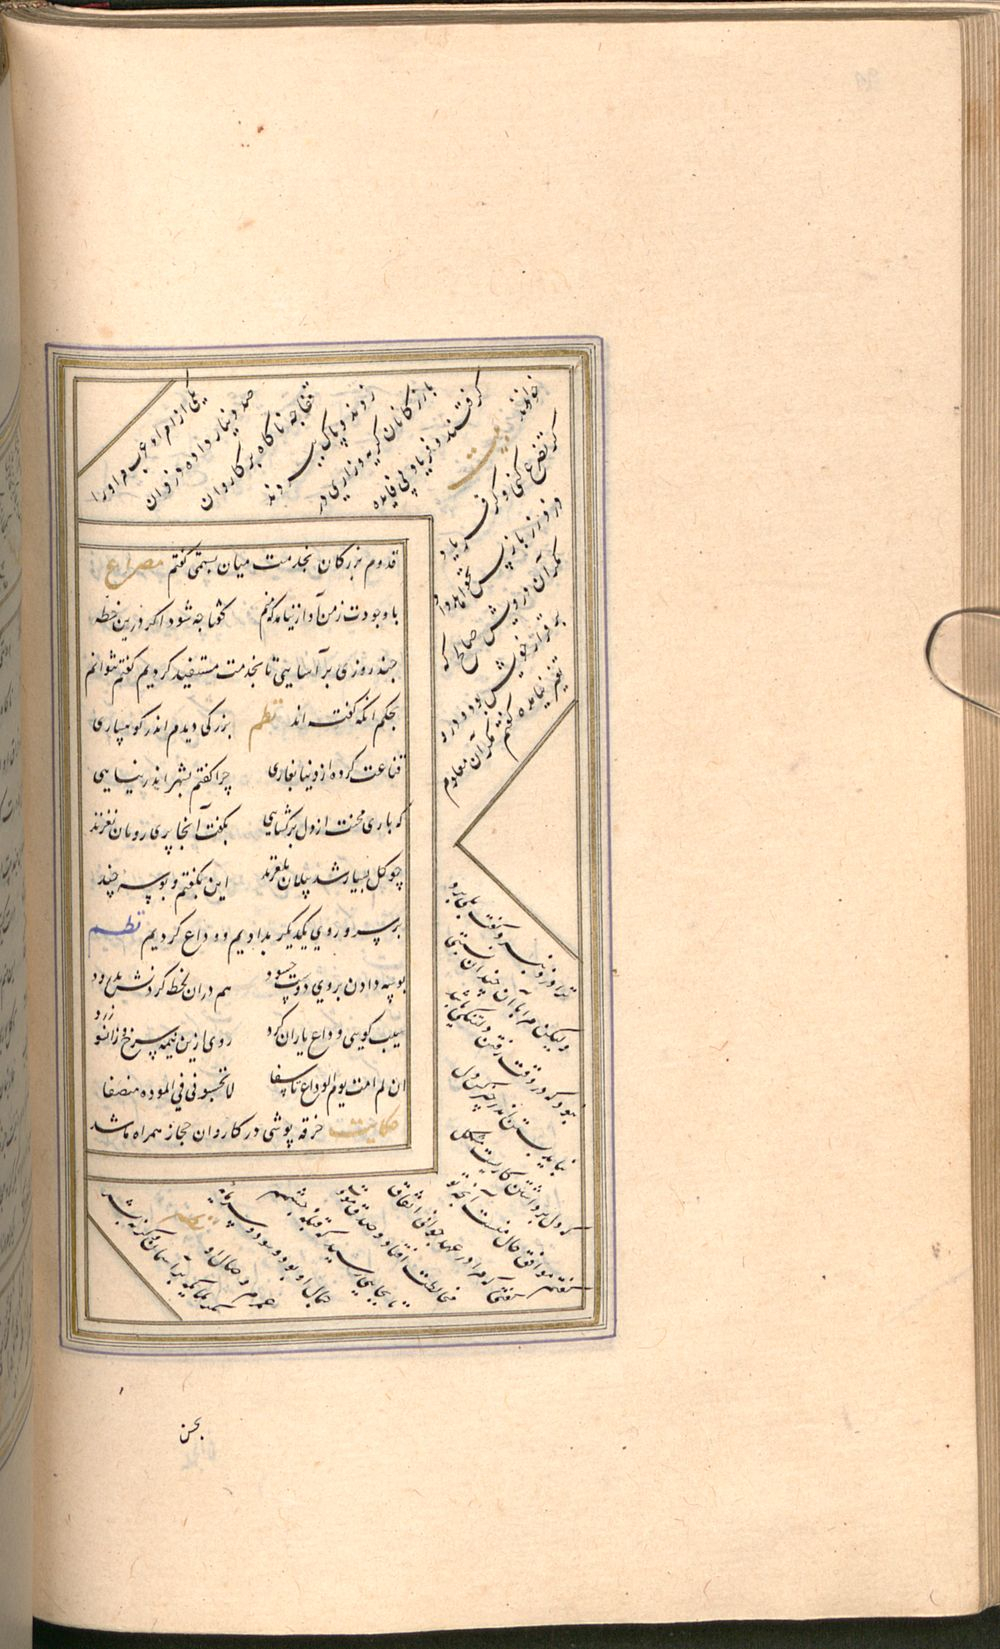 قدوم بزرگان بخدمت میان بستمی گفتم مصراع
با وجودت زمن آواز نیامد که منم گفتا چه شود اگر درین خطه
چند روزی بر آسایی تا بخدمت مستفید کردیم گفتم نتوانم
بحکم آنکه گفته اند نظم بزرگی دیدم اندر کوهساری
قناعت کرده از دنیا بغاری چرا گفتم بشهر اندر نیایی
که باری محنت از دل برگشایی بگفت آنجا پری رویان نغزند
چو گل بسیار شد پیلان بلغزند این بگفتم و بوسه چند
بر سر و روی یکدیگر بدادیم و وداع کردیم نظم
بوسه دادن بروی دوست چسود هم دران لحظه کردنش بدرود
سیب گویی وداع یاران کرد روی ازین نیمه سرخ و زان سو زرد
ان لم امت یوم الوداع تاسفا لا تحسبونی فی الموده منصفا
حکایت خرقه پوشی در کاروان حجاز همراه ما شد
یکی از امراء عرب مر او را
صد دینار داده دزدان
خفاجه ناگاه بر کاروان
زدند و پاک ببردند
بازرگانان گریه و زاری در
گرفتند و فریاد بی فایده
خواندند بیت
گر تضرع کنی و گر فریاد
دزد زر باز پس نخواهد داد
مگر آن درویش صالح که
بر قرار خویش بود و درو
تغیر نیامده گفتم مگر آن معلوم
ترا دزد نبرد گفت بلی برد
ولیکن مرا با آن چندان الفتی
نبود که در وقت رفتن دلتنگی باشد
نباید بستن اندر چیز کس دل
که دل برداشتن کاریست مشکل
گفتم موافق حال منست آنچه تو
گفتی که مرا در عهد جوانی اتفاق
مخالطت افتاد و صدق مودت
تا بجایی رسید که قبله چشمم
جمال او بود و سود و سرمایه
عمرم وصال او نظم
مگر ملایکه بر آسمان وگرنه بشر
بحسن